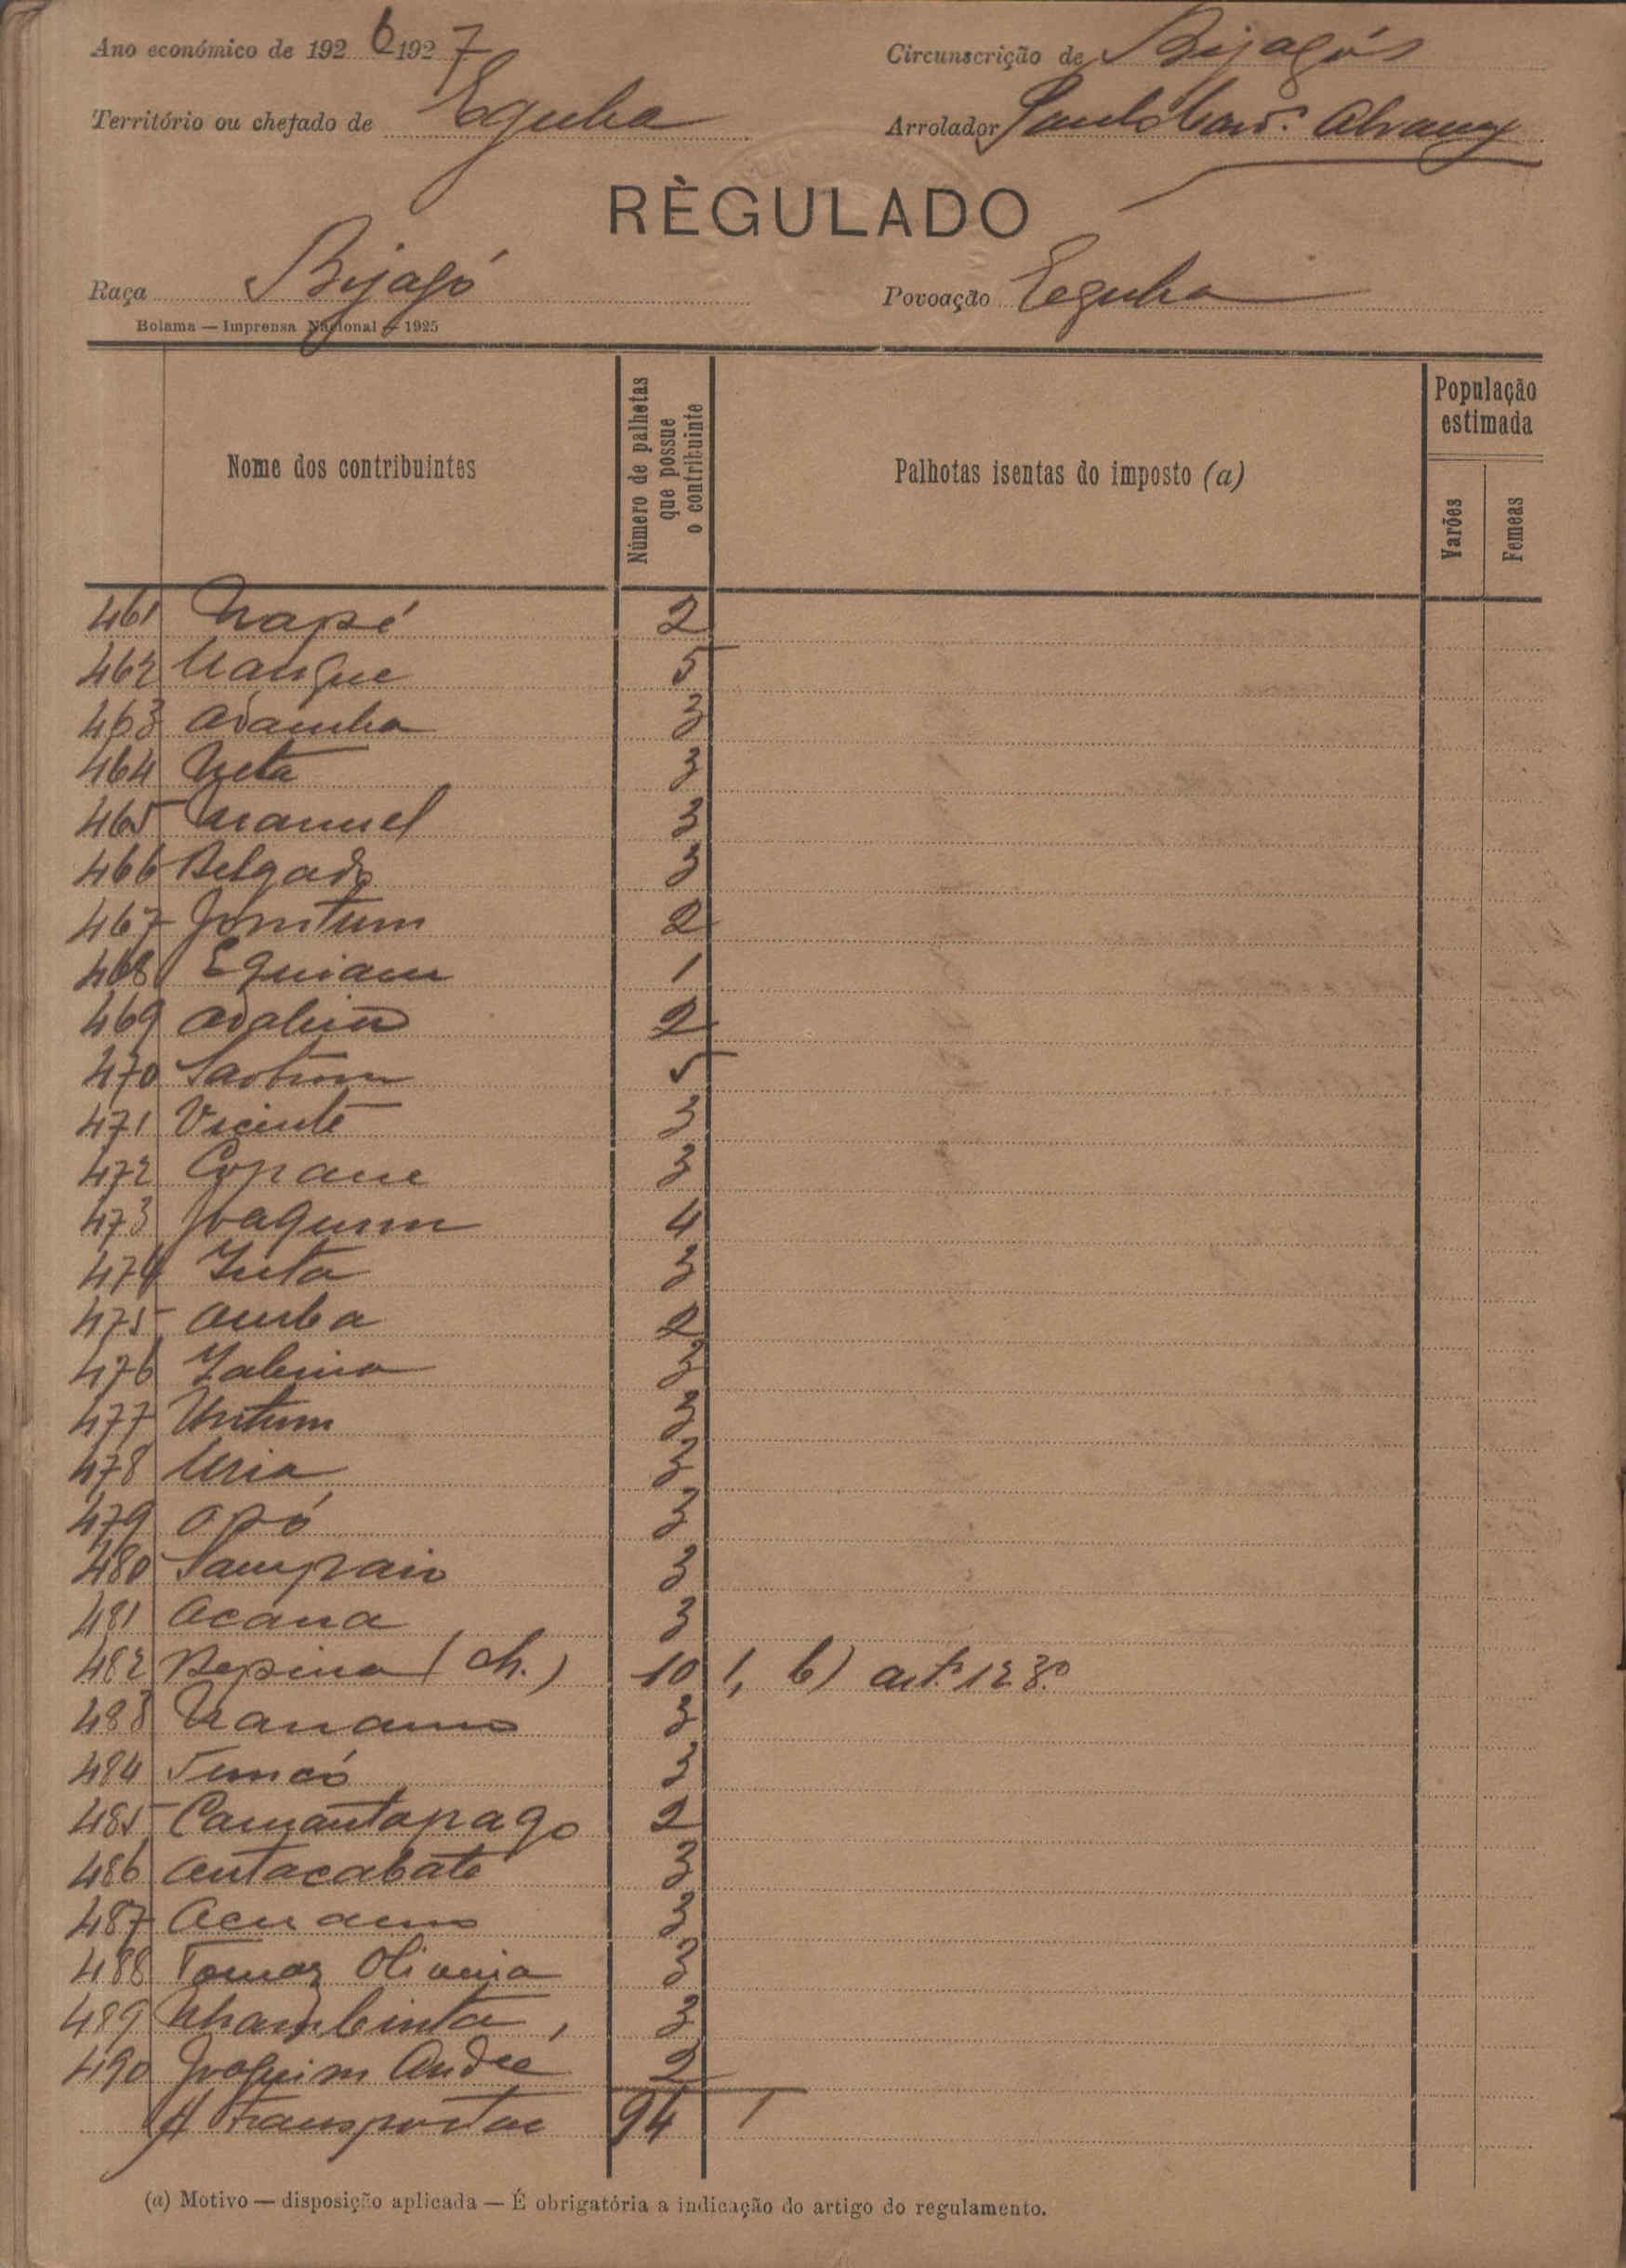 Ano económico de 1926-1927 Circunscrição de Bijagós
Território ou chefado de Eguba Arrolador
RÈGULADO
Raça Bijagó Povoação Eguba
Bolama — Imprensa Nacional — 1925
Nome dos contribuintes
Número de palhetas que possue o contribuinte
Palhotas isentas do imposto (a)
População estimada
Varões
Femeas
461 Napé 2
462 Uangue 5
463 3
464 Neta 3
465 Manuel 3
466 Delgado 3
467 2
468 1
469 2
470 5
471 Vicente 3
472 Copane 3
473 Joaquim 4
474 Juta 3
475 Amba 2
476 3
477 3
478 Uria 3
479 Opó 3
480 Sampaio 3
481 Acana 3
482 (ch.) 10 1, b) artº 123º
483 3
484 3
485 Camantapago 2
486 Antacabate 3
487 3
488 Tomaz Oliveira 3
489 3
490 Joaquim André 2
A transportar 94 1
(a) Motivo — disposição aplicada — É obrigatória a indicação do artigo do regulamento.